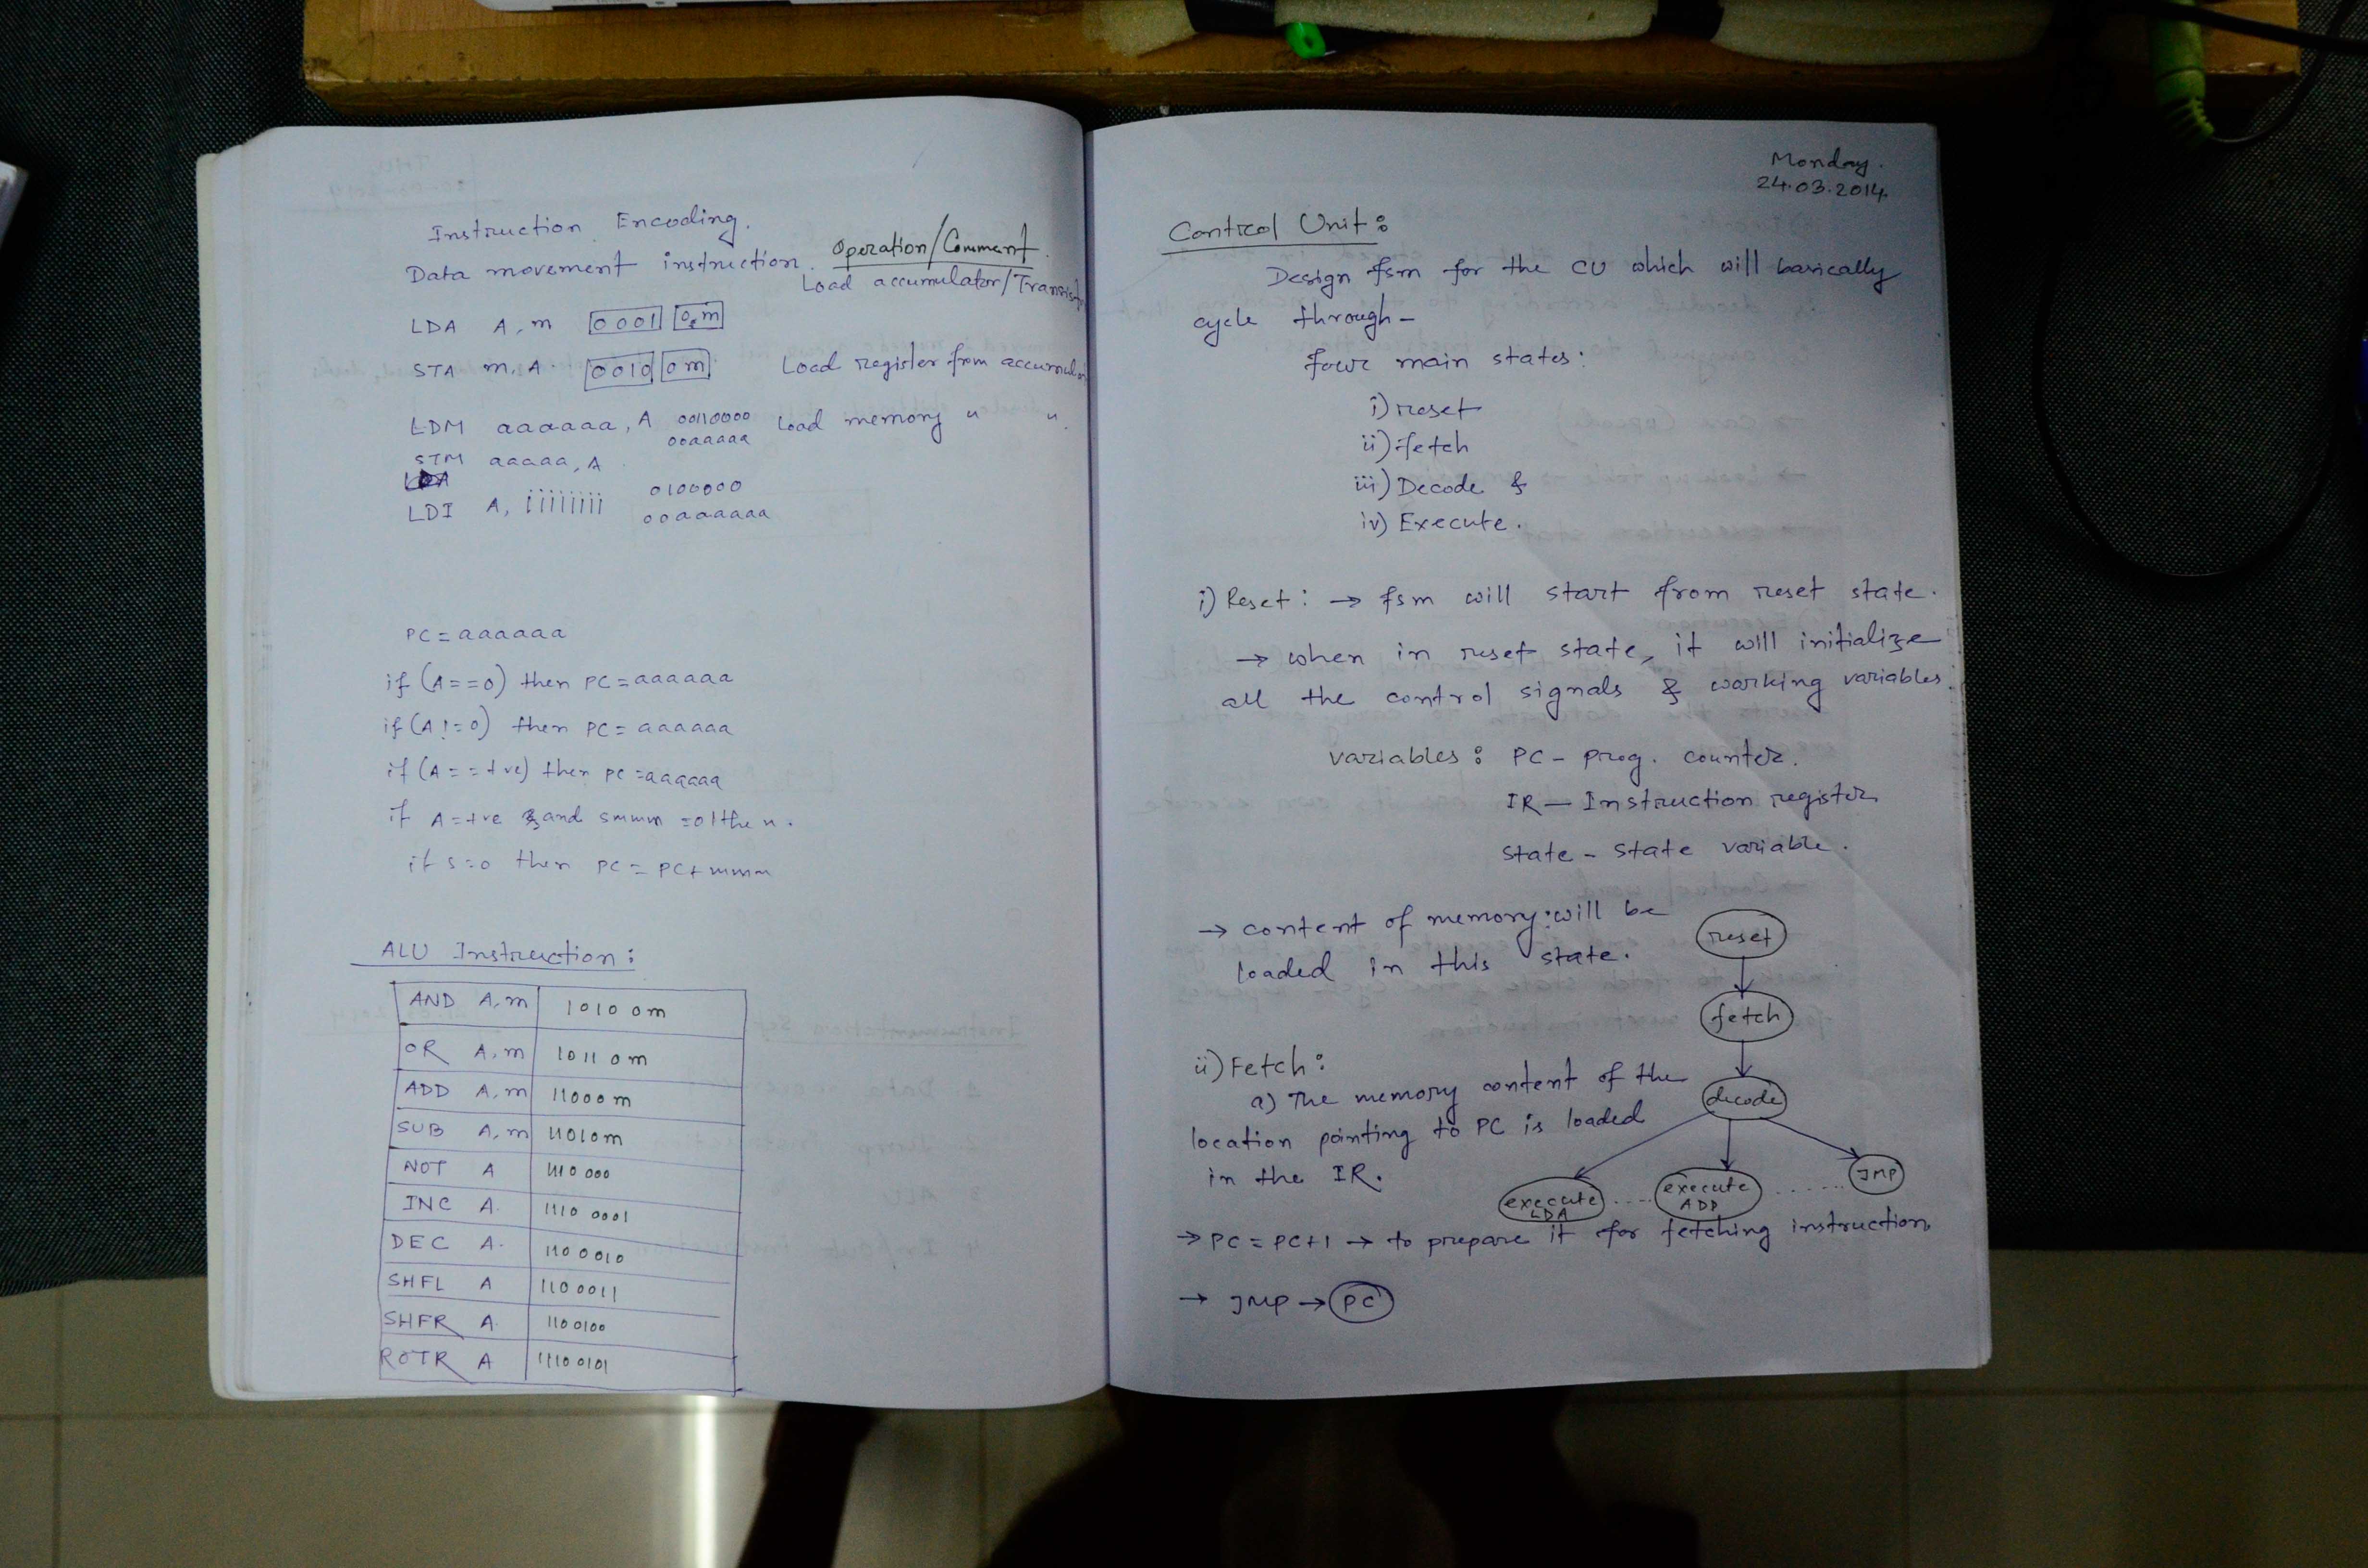 Instruction Encoding.
Data movement instruction. Operation/Comment
Load accumulator/
LDA A, m 0001 0,m
STA m, A. 0010 0m Load register from
LDM aaaaaa, A 00110000 Load memory " ".
00aaaaaa
STM aaaaa, A
LDI A, iiiiiiii 0100000
00aaaaaa
PC = aaaaaa
if (A==0) then PC = aaaaaa
if (A!=0) then PC = aaaaaa
if (A==+ve) then PC = aaaaaa
if A=+ve and smmm = 01 then.
if s=0 then PC = PC+mmm
ALU Instruction:
AND A, m 1010 0m
OR A, m 1011 0m
ADD A, m 11000m
SUB A, m 11010m
NOT A 1110 000
INC A. 1110 0001
DEC A. 110 0010
SHFL A 110 0011
SHFR A. 110 0100
ROTR A 1110 0101
Monday.
24.03.2014.
Control Unit:
Design fsm for the CU which will basically
cycle through -
four main states:
i) reset
ii) fetch
iii) Decode &
iv) Execute.
i) Reset: → fsm will start from reset state.
→ when in reset state, it will initialize
all the control signals & working variables.
variables: PC - prog. counter.
IR — Instruction register
state - state variable.
→ content of memory will be
loaded in this state.
reset
fetch
decode
execute LDA .... execute ADD ...... JMP
ii) Fetch:
a) The memory content of the
location pointing to PC is loaded
in the IR.
→ PC = PC+1 → to prepare it for fetching instruction.
→ JMP → PC